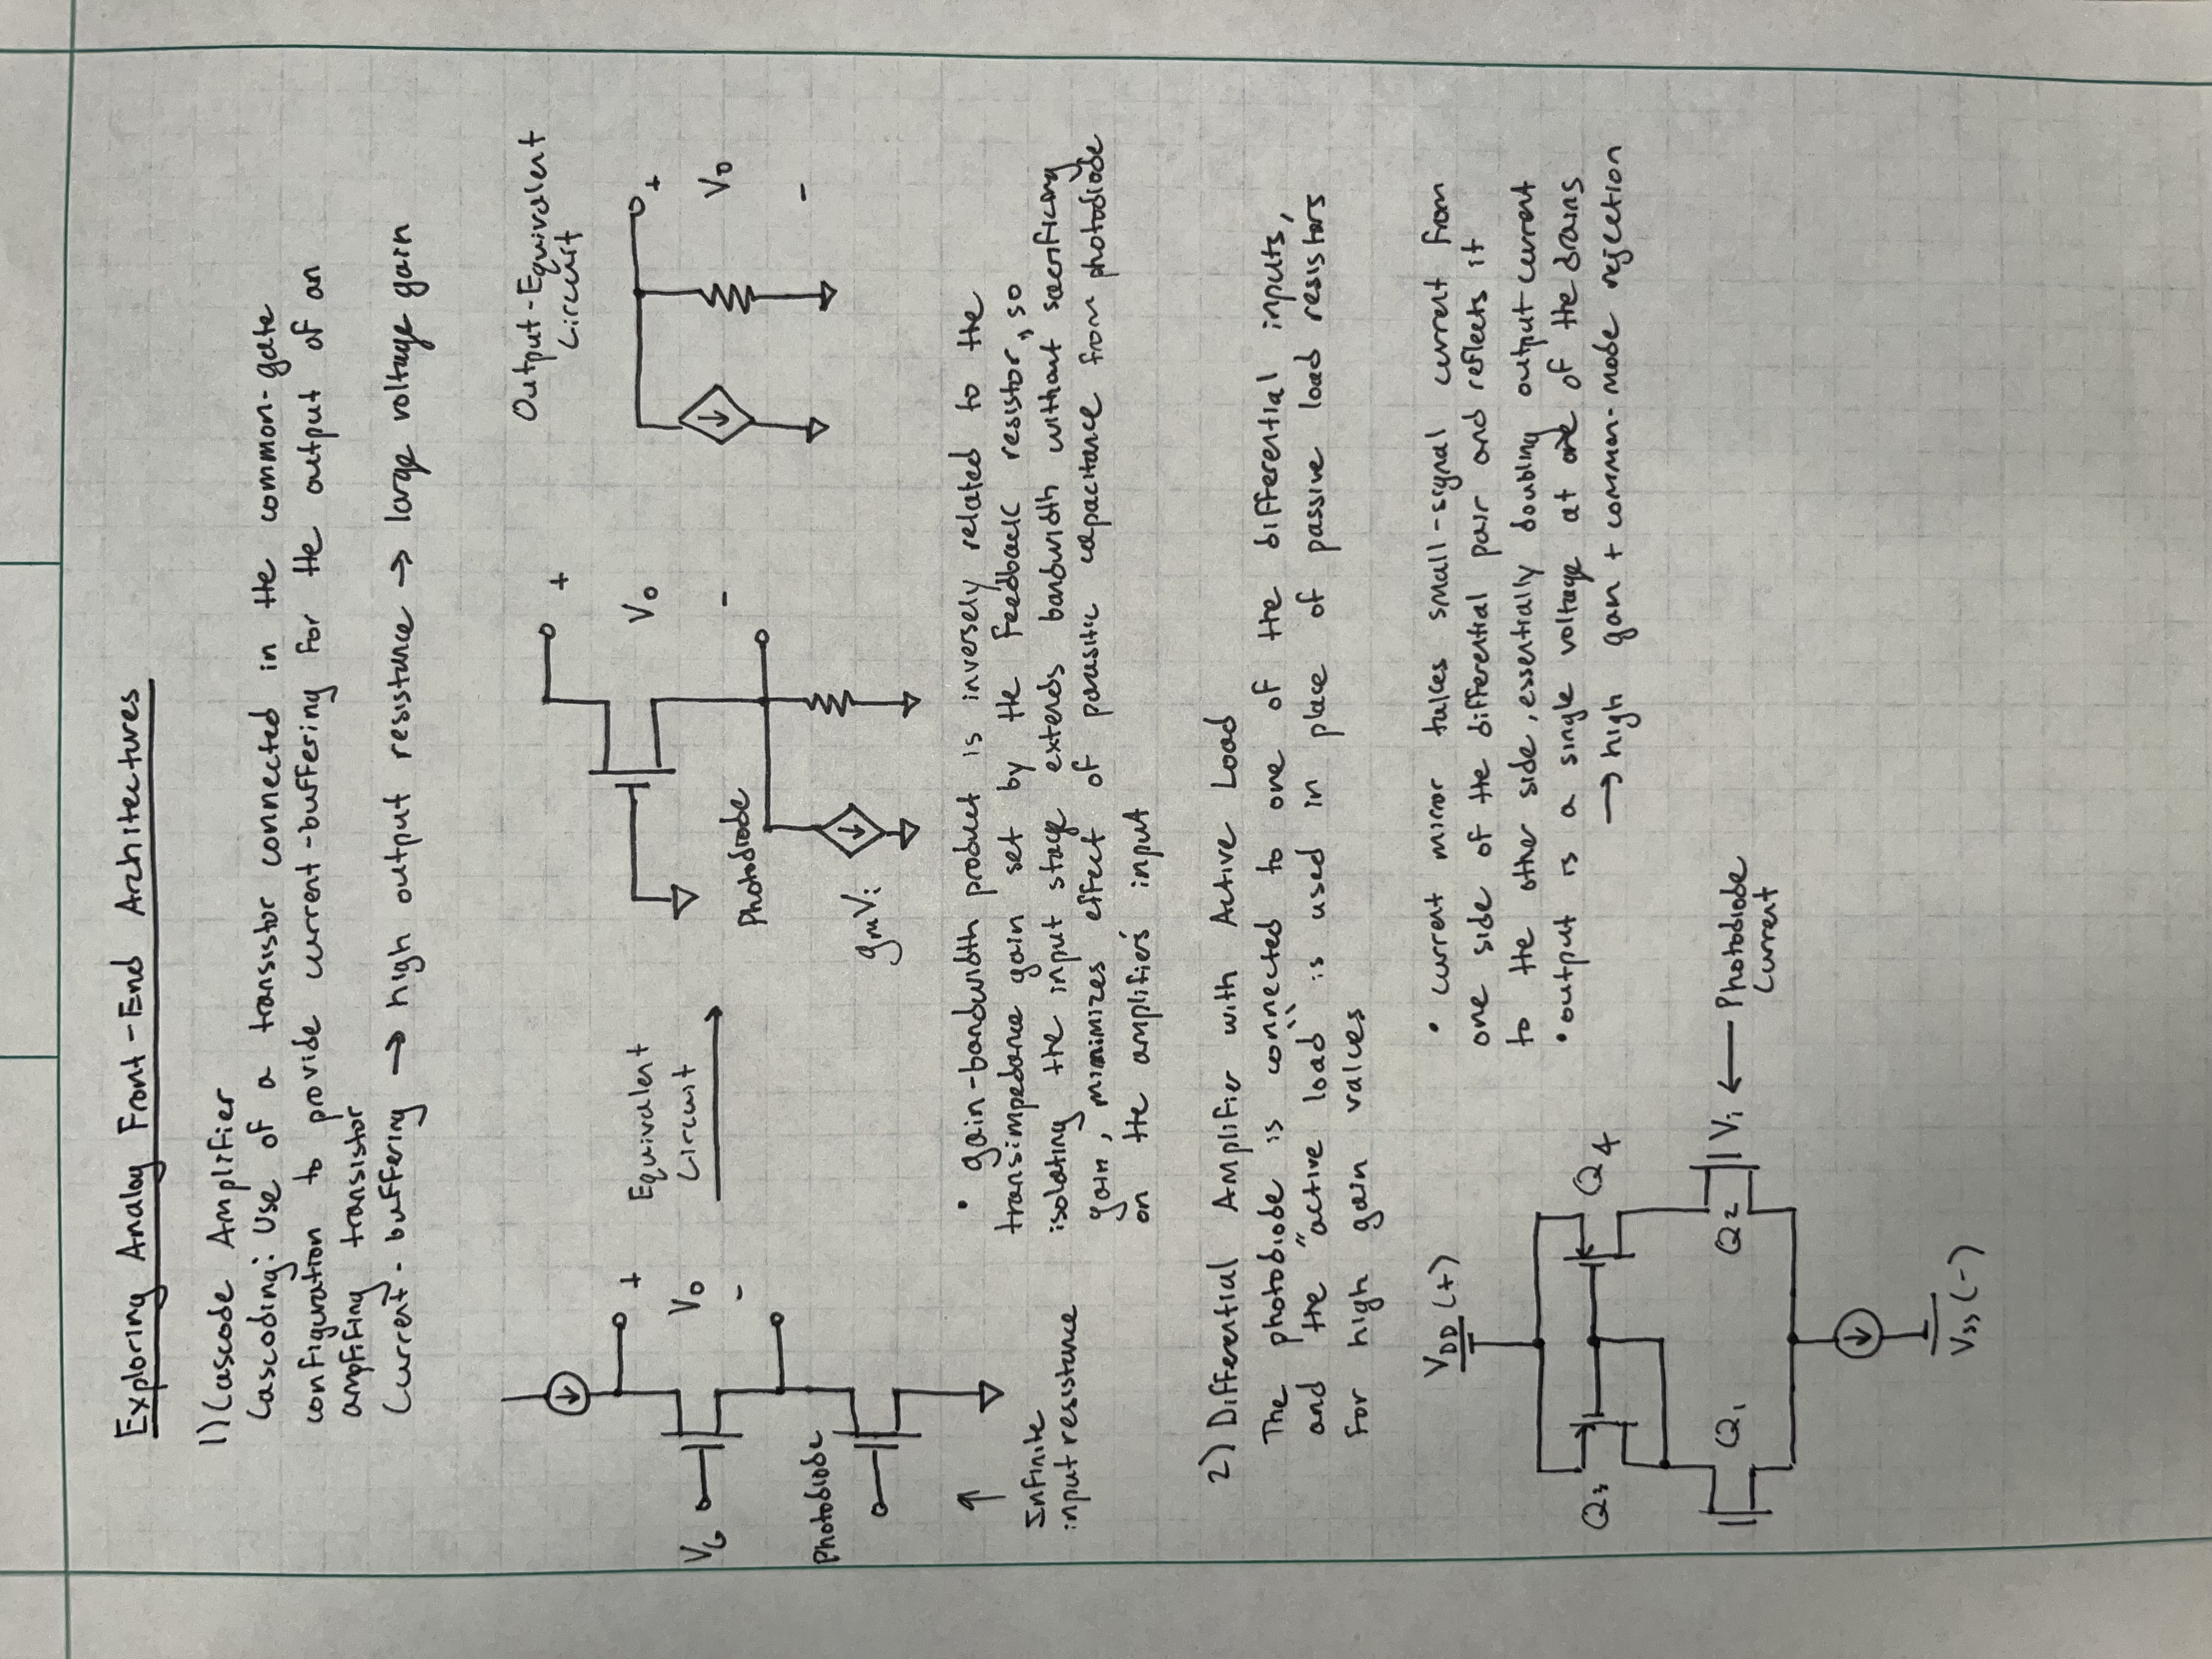 Exploring Analog Front-End Architectures
1) Cascode Amplifier
Cascoding: Use of a transistor connected in the common-gate
configuration to provide current-buffering for the output of an
ampfifing transistor
Current-buffering → high output resistance → large voltage gain
Output-Equivalent
Circuit
+
Equivalent
Circuit
V₀
-
V_G
+
V₀
-
+
V₀
-
Photodiode
Photodiode
gₘVᵢ
↑
Infinite
input resistance
• gain-bandwidth product is inversely related to the
transimpedance gain set by the feedback resistor, so
isolating the input stage extends bandwidth without sacrificing
gain, minimizes effect of parasitic capacitance from photodiode
on the amplifier's input
2) Differential Amplifier with Active Load
The photodiode is connected to one of the differential inputs,
and the "active load" is used in place of passive load resistors
for high gain values
V_DD (+)
Q₃
Q₄
Q₁
Q₂
Vᵢ ← Photodiode
Current
V_SS (-)
• current mirror takes small-signal current from
one side of the differential pair and reflects it
to the other side, essentially doubling output current
• output is a single voltage at one of the drains
→ high gain + common-mode rejection